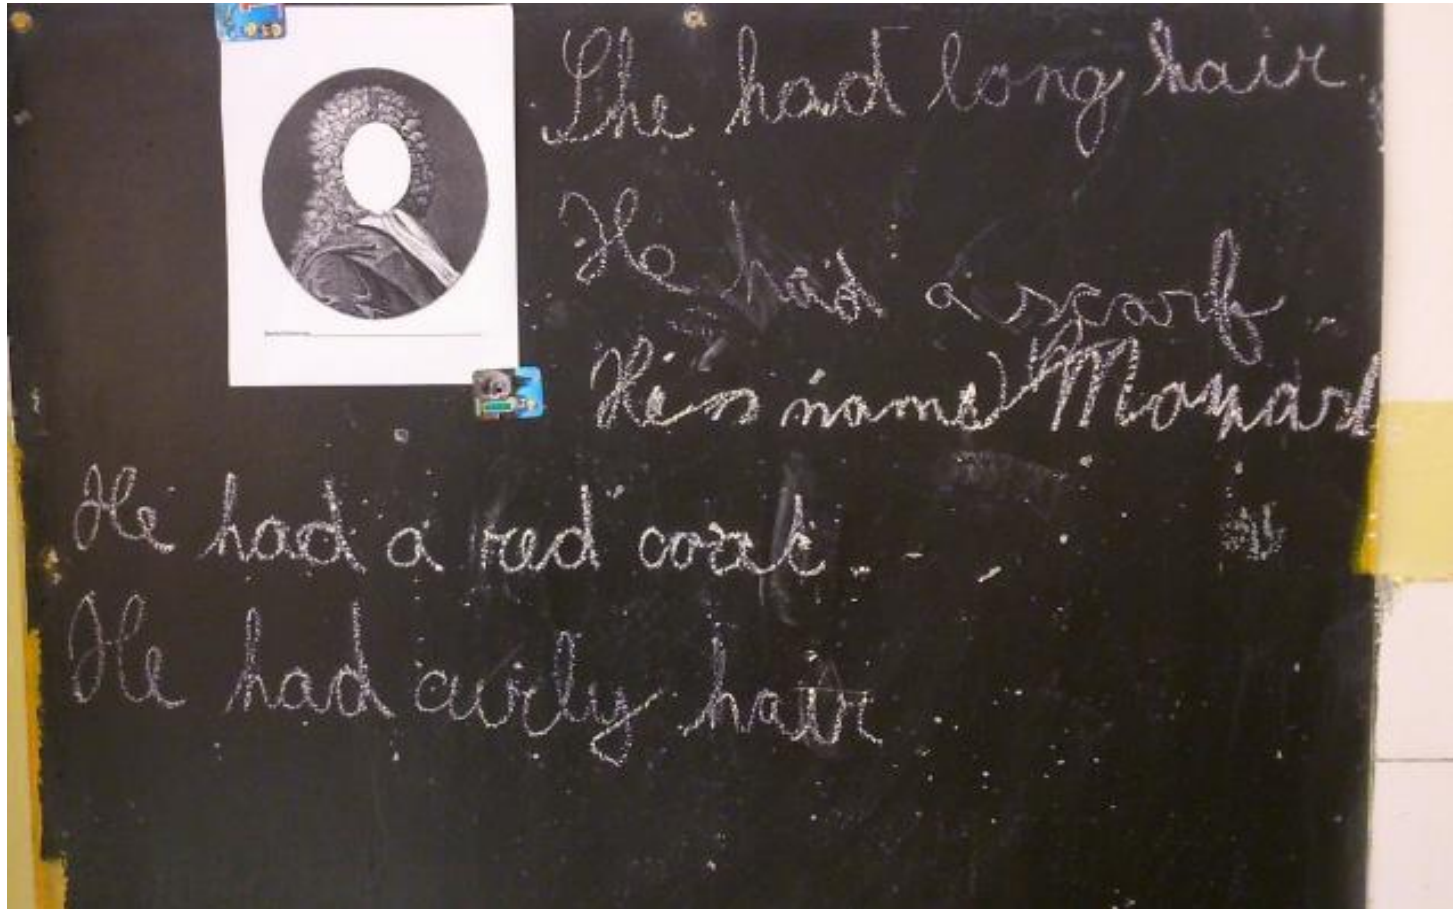 She had long hair.
He had a scarf.
He is name Mozart
He had a red coat.
He had curly hair